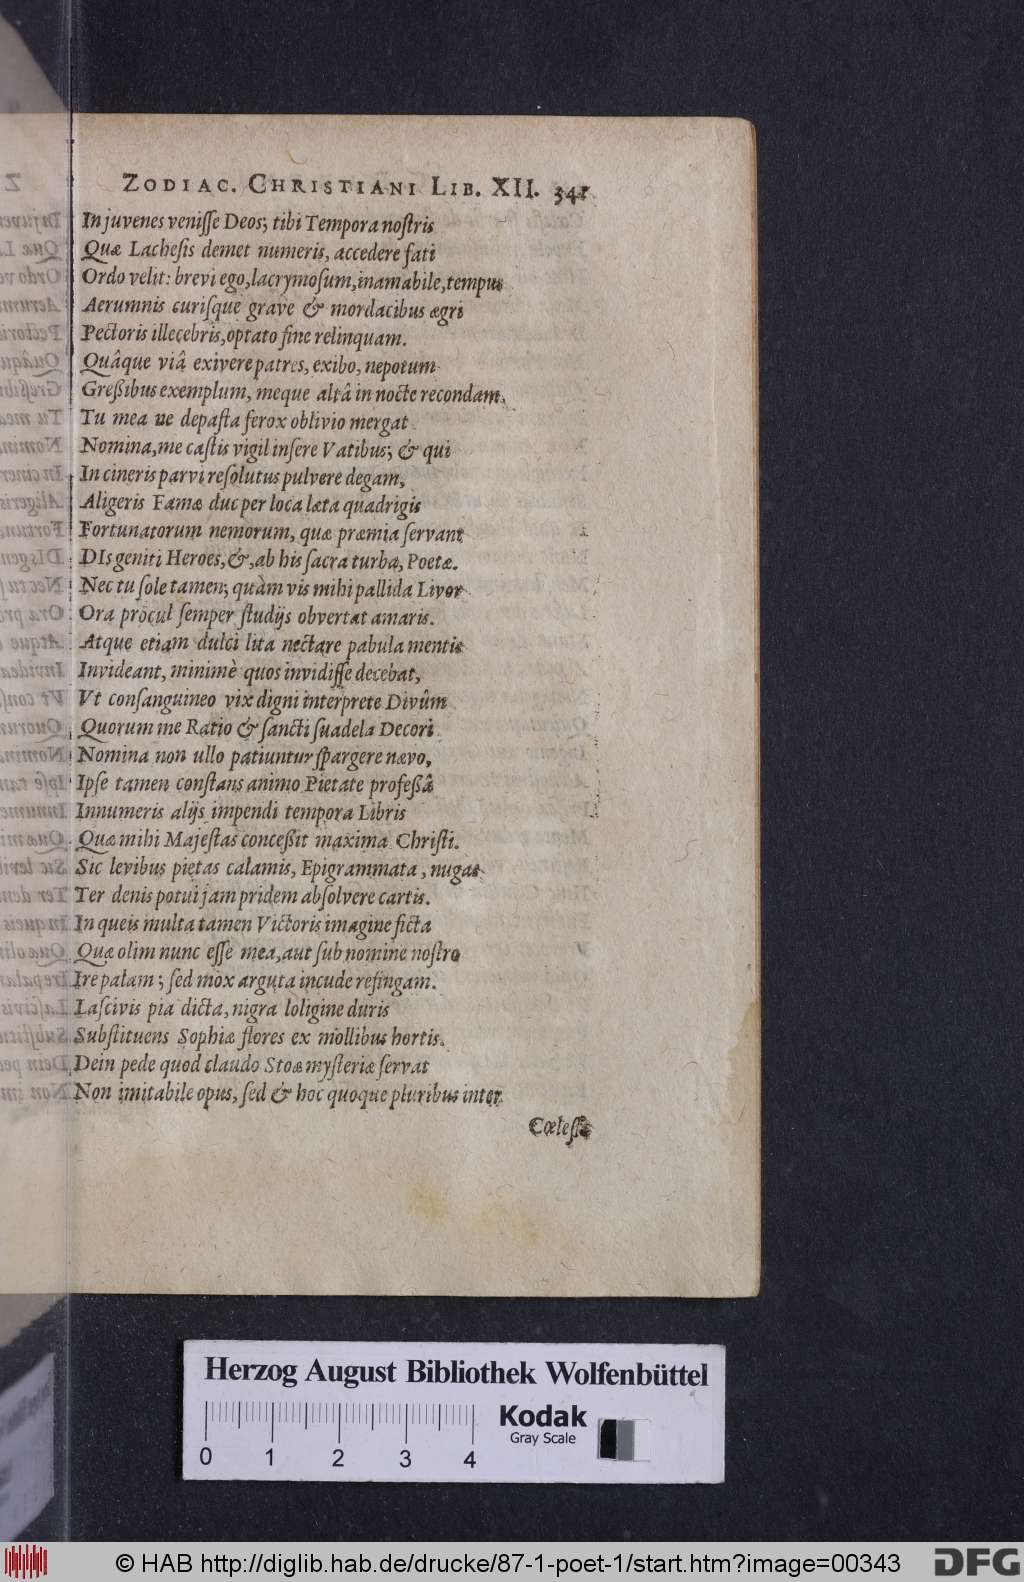 ZODIAC. CHRISTIANI LIB. XII. 341
In juvenes venisse Deos; tibi Tempora nostris
Quæ Lachesis demet numeris, accedere fati
Ordo velit: brevi ego, lacrymosum, inamabile, tempus
Aerumnis curisque grave & mordacibus ægri
Pectoris illecebris, optato fine relinquam.
Quâque viâ exivere patres, exibo, nepotum
Greßibus exemplum, meque altâ in nocte recondam.
Tu mea ne depasta ferox oblivio mergat
Nomina, me castis vigil insere Vatibus; & qui
In cineris parvi resolutus pulvere degam,
Aligeris Famæ duc per loca læta quadrigis
Fortunatorum nemorum, quæ præmia servant
DIs geniti Heroes, &, ab his sacra turba, Poetæ.
Nec tu sole tamen; quàm vis mihi pallida Livor
Ora procul semper studijs obvertat amaris.
Atque etiam dulci lita nectare pabula mentis
Invideant, minimè quos invidisse decebat,
Vt consanguineo vix digni interprete Divûm
Quorum me Ratio & sancti suadela Decori
Nomina non ullo patiuntur spargere nævo,
Ipse tamen constans animo Pietate profeßâ
Innumeris alijs impendi tempora Libris
Quæ mihi Majestas conceßit maxima Christi.
Sic levibus pietas calamis, Epigrammata, nugas
Ter denis potui jam pridem absolvere cartis.
In queis multa tamen Victoris imagine ficta
Quæ olim nunc esse mea, aut sub nomine nostro
Ire palam; sed mox arguta incude refingam.
Lascivis pia dicta, nigra loligine duris
Substituens Sophiæ flores ex mollibus hortis.
Dein pede quod claudo Stoæ mysteria servat
Non imitabile opus, sed & hoc quoque pluribus inter
Cœlesti
Herzog August Bibliothek Wolfenbüttel
Kodak
Gray Scale
0 1 2 3 4
© HAB http://diglib.hab.de/drucke/87-1-poet-1/start.htm?image=00343
DFG